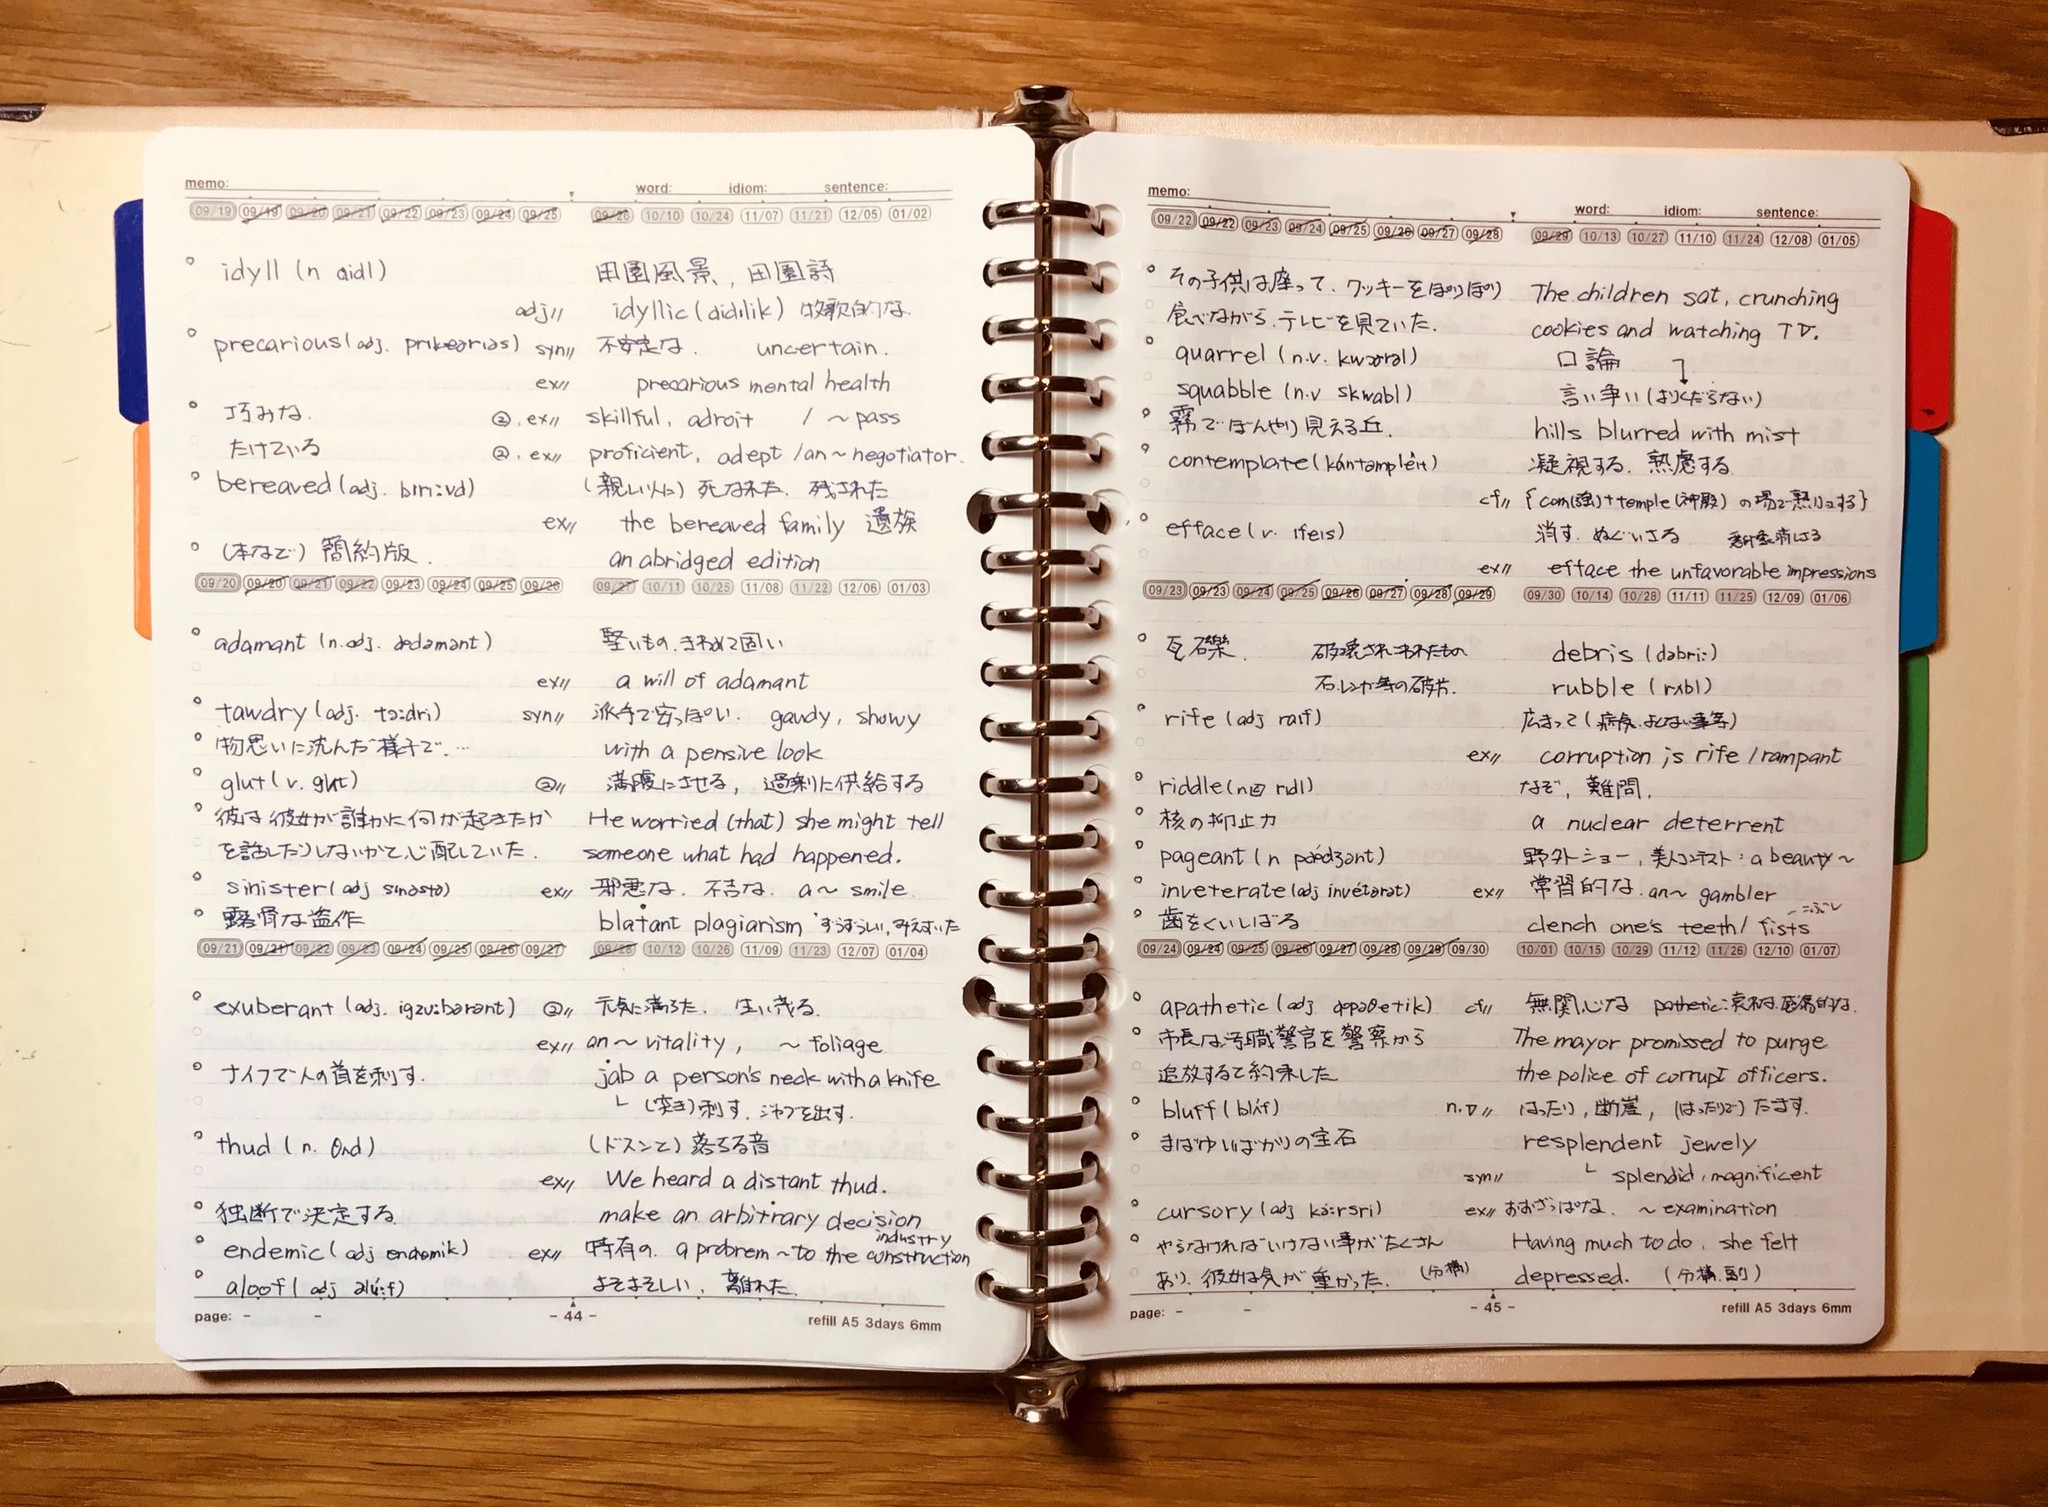 memo:
word: idiom: sentence:
09/19 09/19 09/20 09/21 09/22 09/23 09/24 09/25 09/26 10/10 10/24 11/07 11/21 12/05 01/02
idyll (n aidl) 田園風景, 田園詩
adj// idyllic (aidilik) 牧歌的な
precarious (adj. prikeəriəs) syn// 不安定な. uncertain.
ex// precarious mental health
巧みな. ②, ex// skillful, adroit / ~ pass
たけている ②, ex// proficient, adept / an ~ negotiator.
bereaved (adj. biri:vd) (親しい人に) 死なれた. 残された
ex// the bereaved family 遺族
(本などで) 簡約版. an abridged edition
09/20 09/20 09/21 09/22 09/23 09/24 09/25 09/26 09/27 10/11 10/25 11/08 11/22 12/06 01/03
adamant (n.adj. ædəmənt) 堅いもの. きわめて固い
ex// a will of adamant
tawdry (adj. tɔ:dri) syn// 派手で安っぽい. gaudy, showy
物思いに沈んだ様子で.… with a pensive look
glut (v. glʌt) ②// 満腹にさせる, 過剰に供給する
彼は彼女が誰かに何が起きたか He worried (that) she might tell
を話したりしないかと心配していた. someone what had happened.
sinister (adj sinəstə) ex// 邪悪な. 不吉な. a ~ smile.
露骨な盗作 blatant plagiarism ずうずうしい,
09/21 09/21 09/22 09/23 09/24 09/25 09/26 09/27 09/28 10/12 10/26 11/09 11/23 12/07 01/04
exuberant (adj. igzu:bərənt) ②// 元気に満ちた. 生い茂る.
ex// an ~ vitality, ~ foliage
ナイフで人の首を刺す. jab a person's neck with a knife
└ (突き)刺す. ジャブを出す.
thud (n. θʌd) (ドスンと) 落ちる音
ex// We heard a distant thud.
独断で決定する make an arbitrary decision
industry
endemic (adj endemik) ex// 特有の. a probrem ~ to the construction
aloof (adj əlú:f) よそよそしい, 離れた.
page: - - - 44 - refill A5 3days 6mm
memo:
word: idiom: sentence:
09/22 09/22 09/23 09/24 09/25 09/26 09/27 09/28 09/29 10/13 10/27 11/10 11/24 12/08 01/05
その子供は座って、クッキーをぽりぽり The children sat, crunching
食べながら、テレビを見ていた. cookies and watching TV.
quarrel (n.v. kwɔrəl) 口論
squabble (n.v skwabl) 言い争い (よりくだらない)
霧でぼんやり見える丘. hills blurred with mist
contemplate (kántəmplèit) 凝視する. 熟慮する.
cf// {com(強)+temple(神殿) の場で熟りょする}
efface (v. ifeis) 消す. ぬぐいさる
ex// efface the unfavorable impressions
09/23 09/23 09/24 09/25 09/26 09/27 09/28 09/29 09/30 10/14 10/28 11/11 11/25 12/09 01/06
瓦礫. 破壊されこわれたもの debris (dəbri:)
石.レンガ等の破片. rubble (rʌbl)
rife (adj raif) 広まって (病気.よくない事等)
ex// corruption is rife / rampant
riddle (n ridl) なぞ, 難問.
核の抑止力 a nuclear deterrent
pageant (n pædʒənt) 野外ショー, 美人コンテスト : a beauty ~
inveterate (adj invétərət) ex// 常習的な. an ~ gambler
こぶし
歯をくいしばる clench one's teeth / fists
09/24 09/24 09/25 09/26 09/27 09/28 09/29 09/30 10/01 10/15 10/29 11/12 11/26 12/10 01/07
apathetic (adj æpəθetik) cf// 無関心な pathetic:
市長は汚職警官を警察から The mayor promissed to purge
追放すると約束した the police of corrupt officers.
bluff (blʌf) n.v// はったり, 断崖, (はったりで) だます.
まばゆいばかりの宝石 resplendent jewely
syn// └ splendid, magnificent
cursory (adj kə:rsri) ex// おおざっぱな. ~ examination
やらなければいけない事がたくさん Having much to do, she felt
あり、彼女は気が重かった. (分構) depressed. (分構.副)
page: - - - 45 - refill A5 3days 6mm